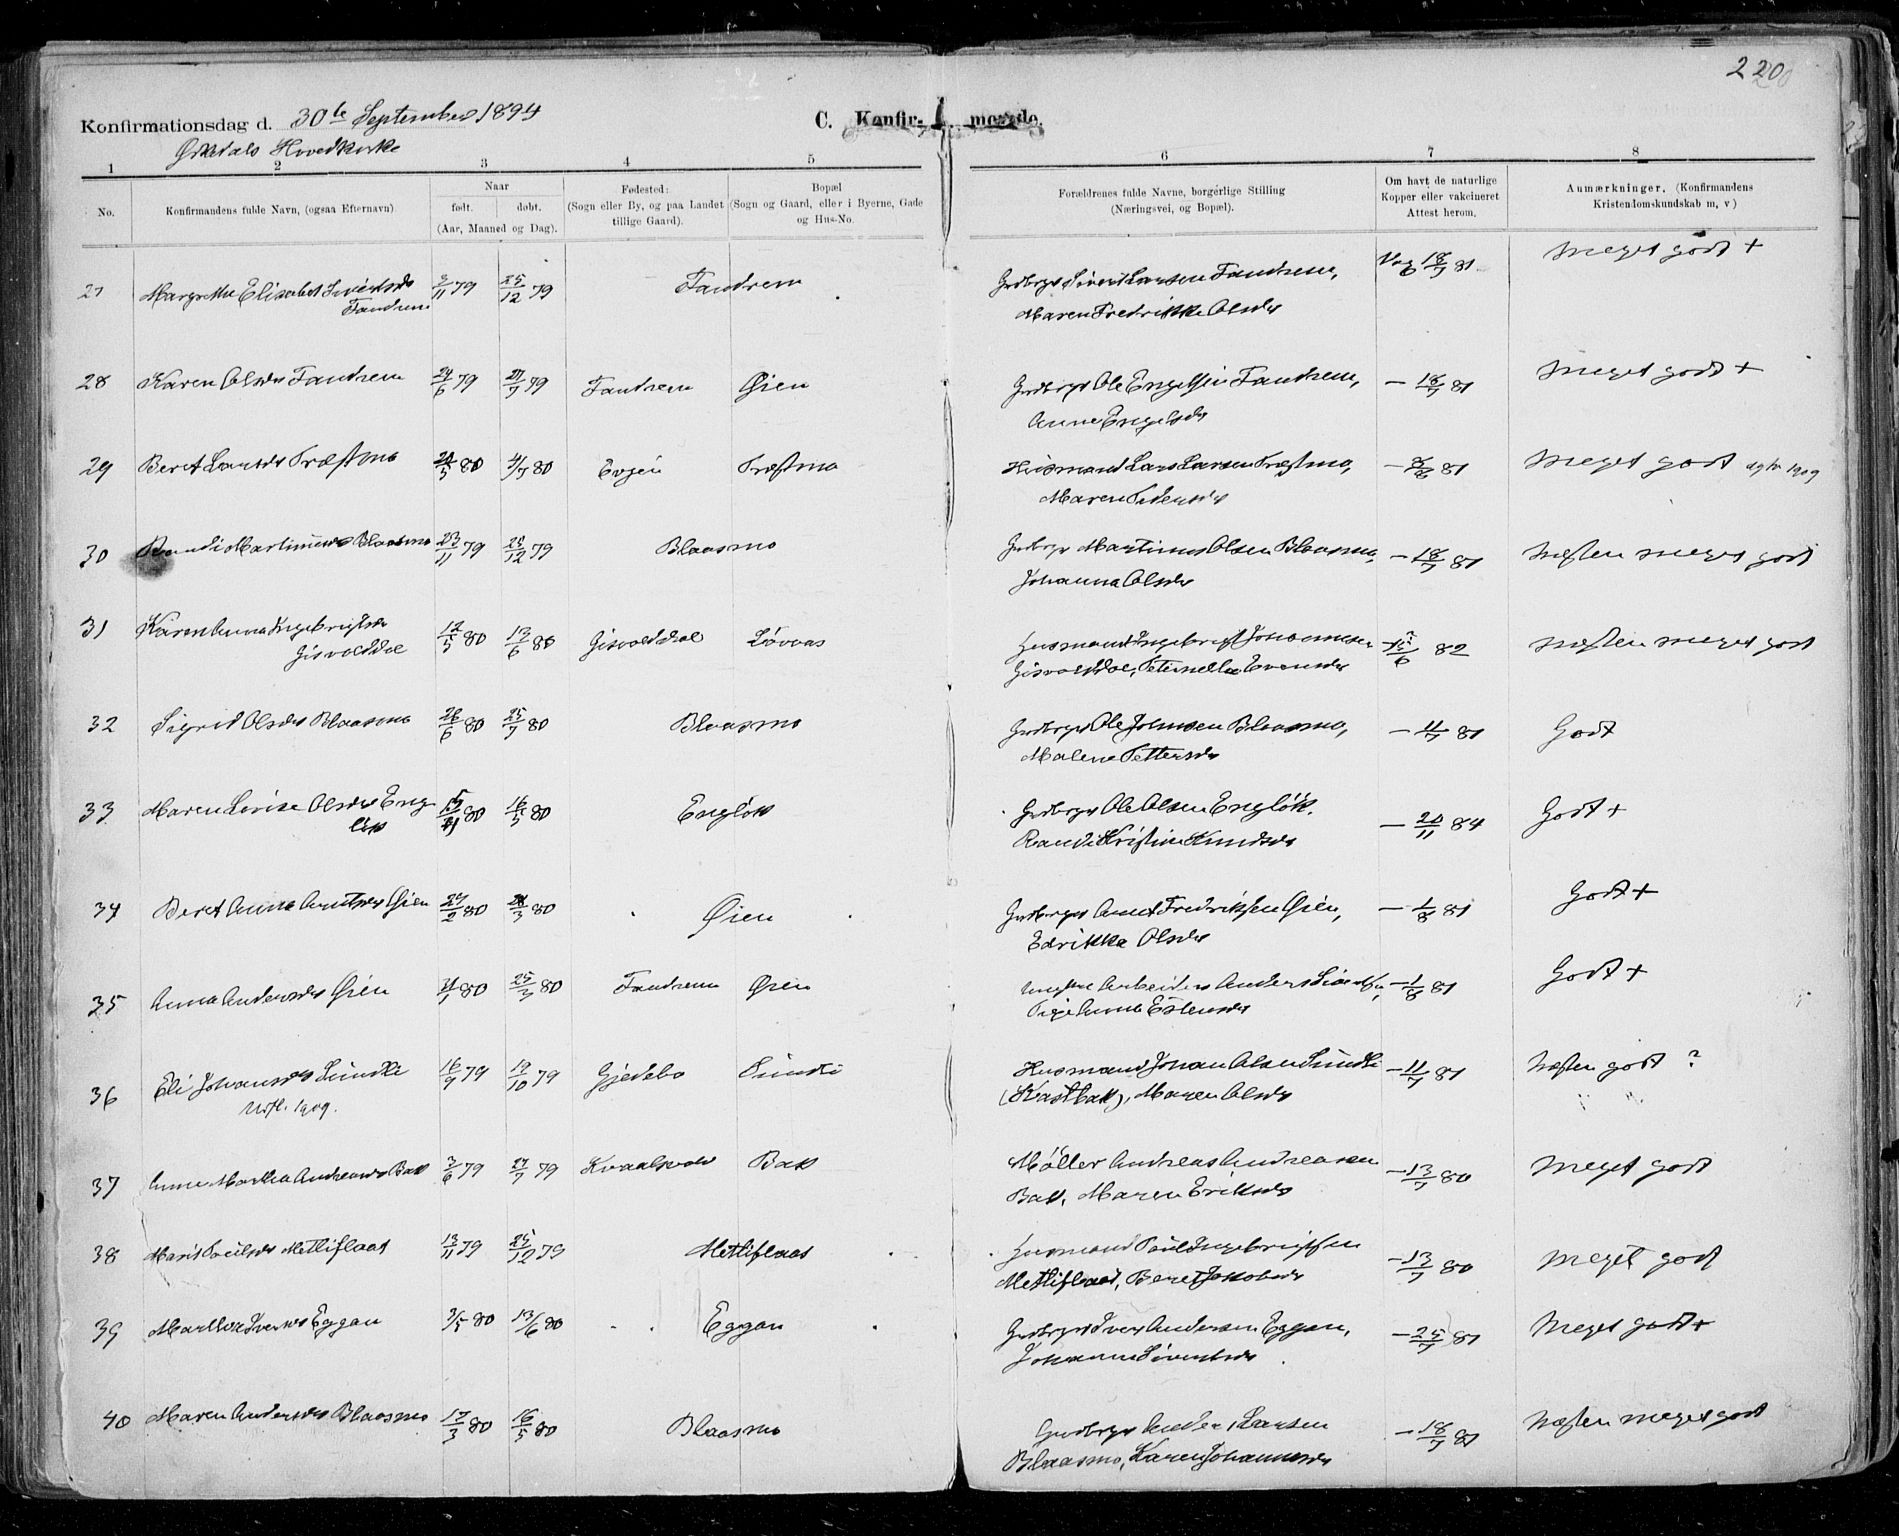 220
Konfirmationsdag d. 30te September 1894
C. Konfirmerede.
Ørkedals Hovedkirke
1 2 3 4 5 6 7 8
No.
Konfirmandens fulde Navn, (ogsaa Efternavn)
Naar
født. døbt.
(Aar, Maaned og Dag).
Fødested:
(Sogn eller By, og paa Landet
tillige Gaard).
Bopæl
(Sogn og Gaard, eller i Byerne, Gade
og Hus-No.
Forældrenes fulde Navne, borgerlige Stilling
(Næringsvei, og Bopæl).
Om havt de naturlige
Kopper eller vakcineret
Attest herom.
Anmærkninger. (Konfirmandens
Kristendomskundskab m, v)
27 Margrethe Elisabet Sivertsdr 3/11 79 25/12 79 Fandrem Grdbrger Sivert Larsen Fandrem, Vac 18/7 81 Meget godt +
Fandrem Maren Fredrikke Olsdr
28 Karen Olsdr Fandrem 24/6 79 27/7 79 Fandrem Øien Grdbrgr Ole Engelsen Fandrem, — 18/7 81 Meget godt +
Anne Engelsdr
29 Beret Larsdr Træstmo 80 4/7 80 Evjen Træstmo Husmand Lars Larsen Træstmo, — 81 Meget godt 1909
Maren Pedersdr
30 Randi Martinusdr Blaasmo 23/11 79 28/12 79 Blaasmo Grdbrgr Martinus Olsen Blaasmo, — 18/7 81 Næsten meget godt
Johanna Olsdr
31 Karen Anna Ingebrigtsdr 12/5 80 13/6 80 Gisvolddal Løvaas Husmand Ingebrigt Johannesen 82 Næsten meget godt
Gisvolddal Gisvolddal, Peternella Evensdr
32 Sigrid Olsdr Blaasmo 26/6 80 25/7 80 Blaasmo Grdbrgr Ole Johnsen Blaasmo, — 11/7 81 Godt
Malene Pettersdr
33 Maren Lovise Olsdr Eng- 80 16/5 80 Engløk Grdbrgr Ole Olsen Engløk. — 20/11 84 Godt +
løk Randi Kristine Knudsdr
34 Beret Anna Arntsdr Øien 29/2 80 28/3 80 Øien Grdbrgr Arnt Fredriksen Øien, — 1/8 81 Godt +
Edrikke Olsdr
35 Anna Andersdr Øien 80 25/3 80 Fandrem Øien Ungkar Arbeider Anders — 1/8 81 Godt +
Pige Anne Estensdr
36 Eli Johansdr Sundli 16/9 79 19/10 79 Gjedebo Sundli Husmand Johan Olsen Sundli — 11/7 81 Næsten godt ?
Utfl. 1909. (Kastbak), Maren Olsdr
37 Anne Marthea Andreasdr Bak 3/6 79 27/7 79 Kvaalsvold Bak Møller Andreas Andreasen — 13/7 80 Meget godt
Bak, Maren Eriksdr
38 Marit Paulsdr Metliflaat 13/11 79 25/12 79 Metliflaat Husmand Paul Ingebrigtsen — 13/7 80 Meget godt
Metliflaat, Beret Jakobsdr
39 Marthe Iversdr Eggan 3/5 80 13/6 80 Eggan Grdbrgr Iver Andersen Eggan, — 25/7 81 Meget godt +
Johanne Sivertsdr
40 Maren Andersdr Blaasmo 17/3 80 16/5 80 Blaasmo Grdbrgr Anders Larsen — 18/7 81 Næsten meget godt
Blaasmo, Karen Johannesdr